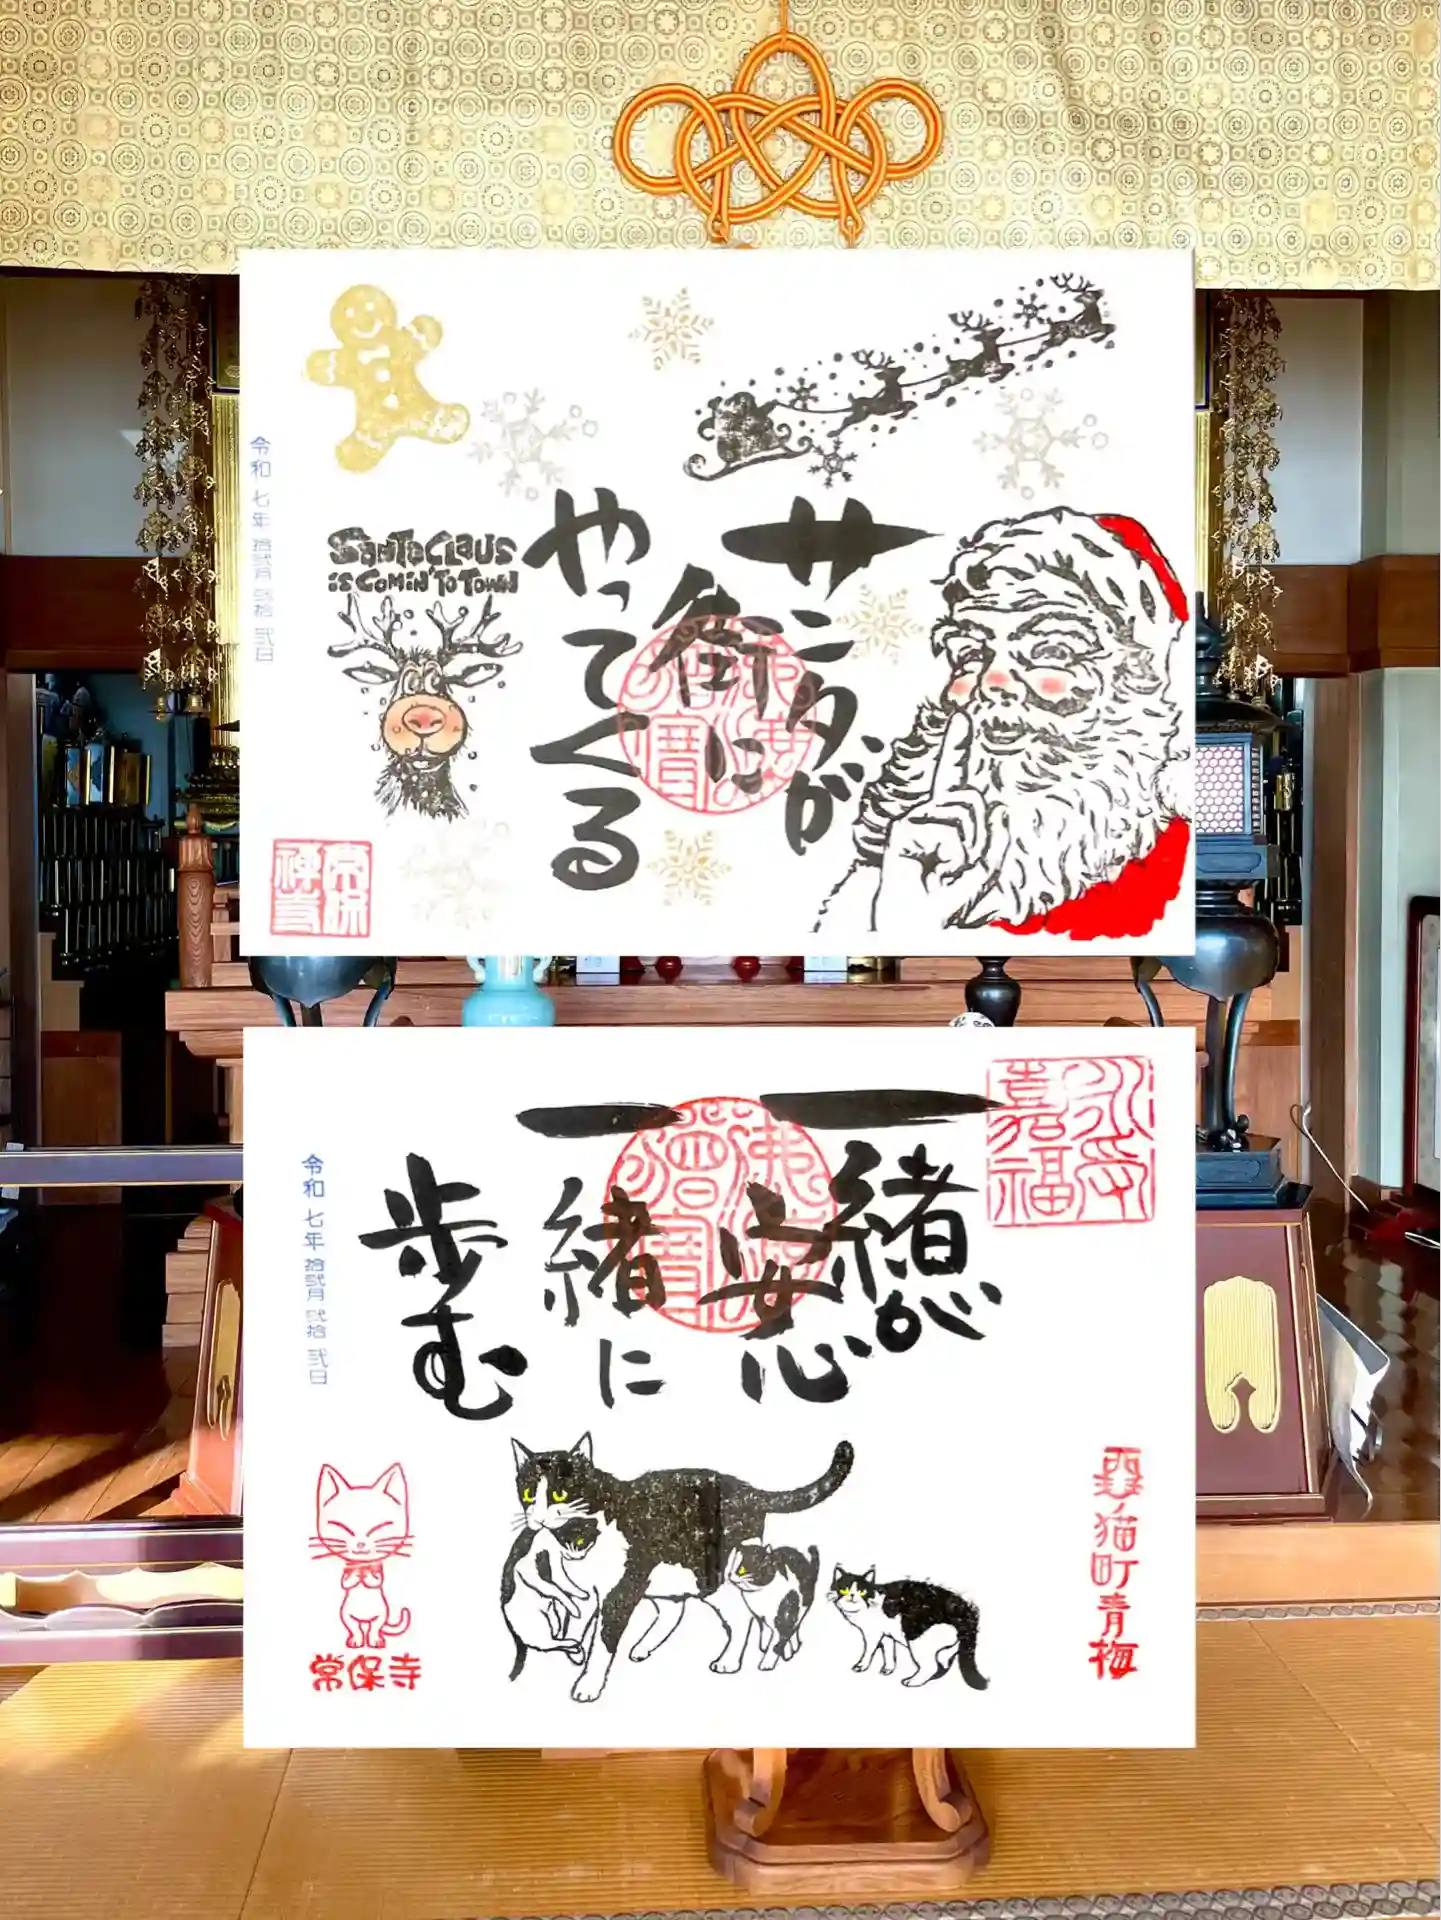 サンタが
街に
やってくる
Santa Claus
is Comin' To Town
令和七年拾弐月弐拾弐日
佛法僧寳
常保禅寺
永受嘉福
一緒が
安心
一緒に
歩む
令和七年拾弐月弐拾弐日
佛法僧寳
常保寺
猫町青梅